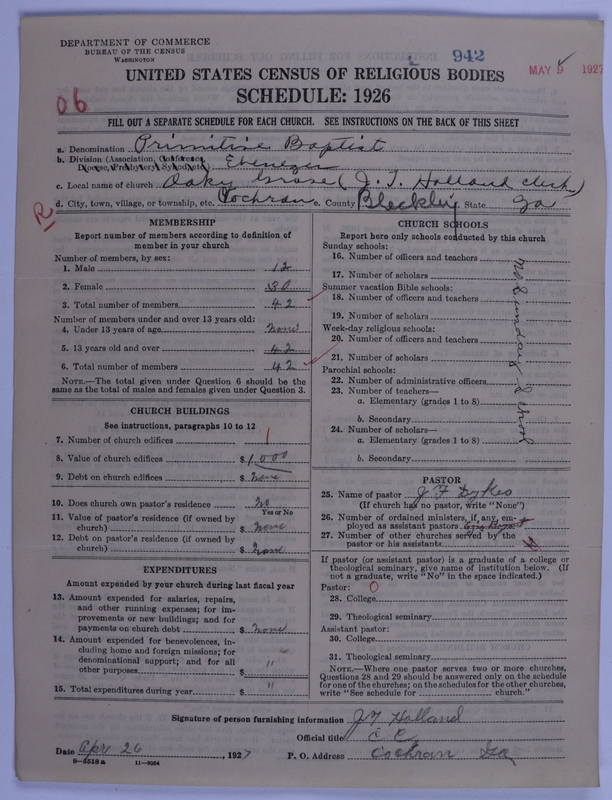 DEPARTMENT OF COMMERCE
BUREAU OF THE CENSUS
WASHINGTON
942
MAY 9 1927
UNITED STATES CENSUS OF RELIGIOUS BODIES
SCHEDULE: 1926
06
FILL OUT A SEPARATE SCHEDULE FOR EACH CHURCH. SEE INSTRUCTIONS ON THE BACK OF THIS SHEET
a. Denomination Primitive Baptist
b. Division (Association, Conference, Diocese, Presbytery, Synod, etc.) Ebenezer
c. Local name of church Oaky Grove (J. T. Holland clerk)
d. City, town, village, or township, etc. Cochran e. County Bleckley State Ga
R
MEMBERSHIP
Report number of members according to definition of
member in your church
Number of members, by sex:
1. Male 12
2. Female 30
3. Total number of members 42
Number of members under and over 13 years old:
4. Under 13 years of age none
5. 13 years old and over 42
6. Total number of members 42
NOTE.—The total given under Question 6 should be the
same as the total of males and females given under Question 3.
CHURCH BUILDINGS
See instructions, paragraphs 10 to 12
7. Number of church edifices 1
8. Value of church edifices $ 1,000
9. Debt on church edifices $ none
10. Does church own pastor's residence no
Yes or No
11. Value of pastor's residence (if owned by
church) $ none
12. Debt on pastor's residence (if owned by
church) $ none
EXPENDITURES
Amount expended by your church during last fiscal year
13. Amount expended for salaries, repairs,
and other running expenses; for im-
provements or new buildings; and for
payments on church debt $ none
14. Amount expended for benevolences, in-
cluding home and foreign missions; for
denominational support; and for all
other purposes $ "
15. Total expenditures during year $ "
CHURCH SCHOOLS
Report here only schools conducted by this church
Sunday schools:
16. Number of officers and teachers
17. Number of scholars
Summer vacation Bible schools:
18. Number of officers and teachers
19. Number of scholars
Week-day religious schools:
20. Number of officers and teachers
21. Number of scholars
Parochial schools:
22. Number of administrative officers
23. Number of teachers—
a. Elementary (grades 1 to 8)
b. Secondary
24. Number of scholars—
a. Elementary (grades 1 to 8)
b. Secondary
No Sunday School
PASTOR
25. Name of pastor J F Dykes
(If church has no pastor, write "None")
26. Number of ordained ministers, if any, em-
ployed as assistant pastors
27. Number of other churches served by the
pastor or his assistants
If pastor (or assistant pastor) is a graduate of a college or
theological seminary, give name of institution below. (If
not a graduate, write "No" in the space indicated.)
Pastor: 0
28. College
29. Theological seminary
Assistant pastor:
30. College
31. Theological seminary
NOTE.—Where one pastor serves two or more churches,
Questions 28 and 29 should be answered only on the schedule
for one of the churches; on the schedules for the other churches,
write "See schedule for church."
Signature of person furnishing information J T Holland
Official title C C
Date Apr 26, 1927 P. O. Address Cochran Ga
8—5518 a 11—9054